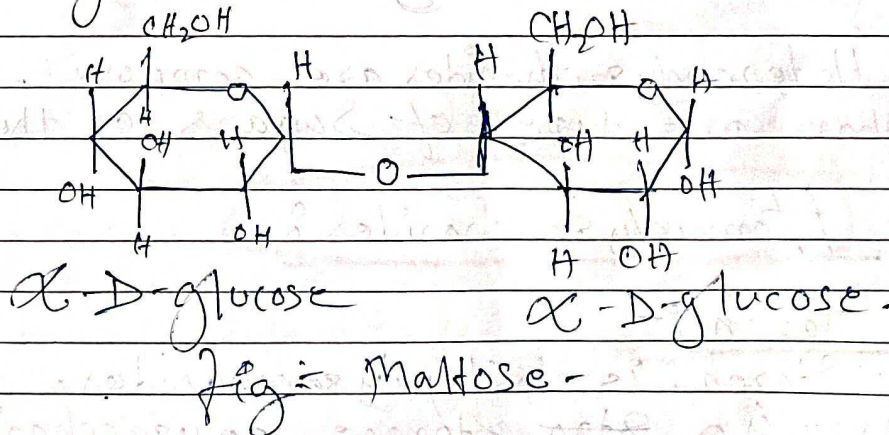 CH2OH CH2OH
H O H H O H
H
OH H OH H
OH O OH
H OH H OH
α-D-glucose α-D-glucose.
Fig:- Maltose-